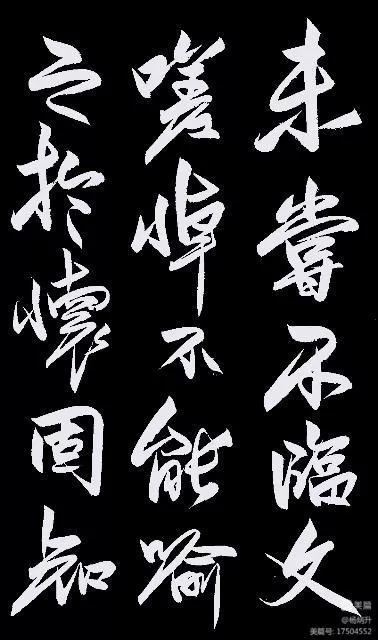 未嘗不臨文
嗟悼不能喻
之於懷固知
美篇
@杨炳升
美篇号: 17504552